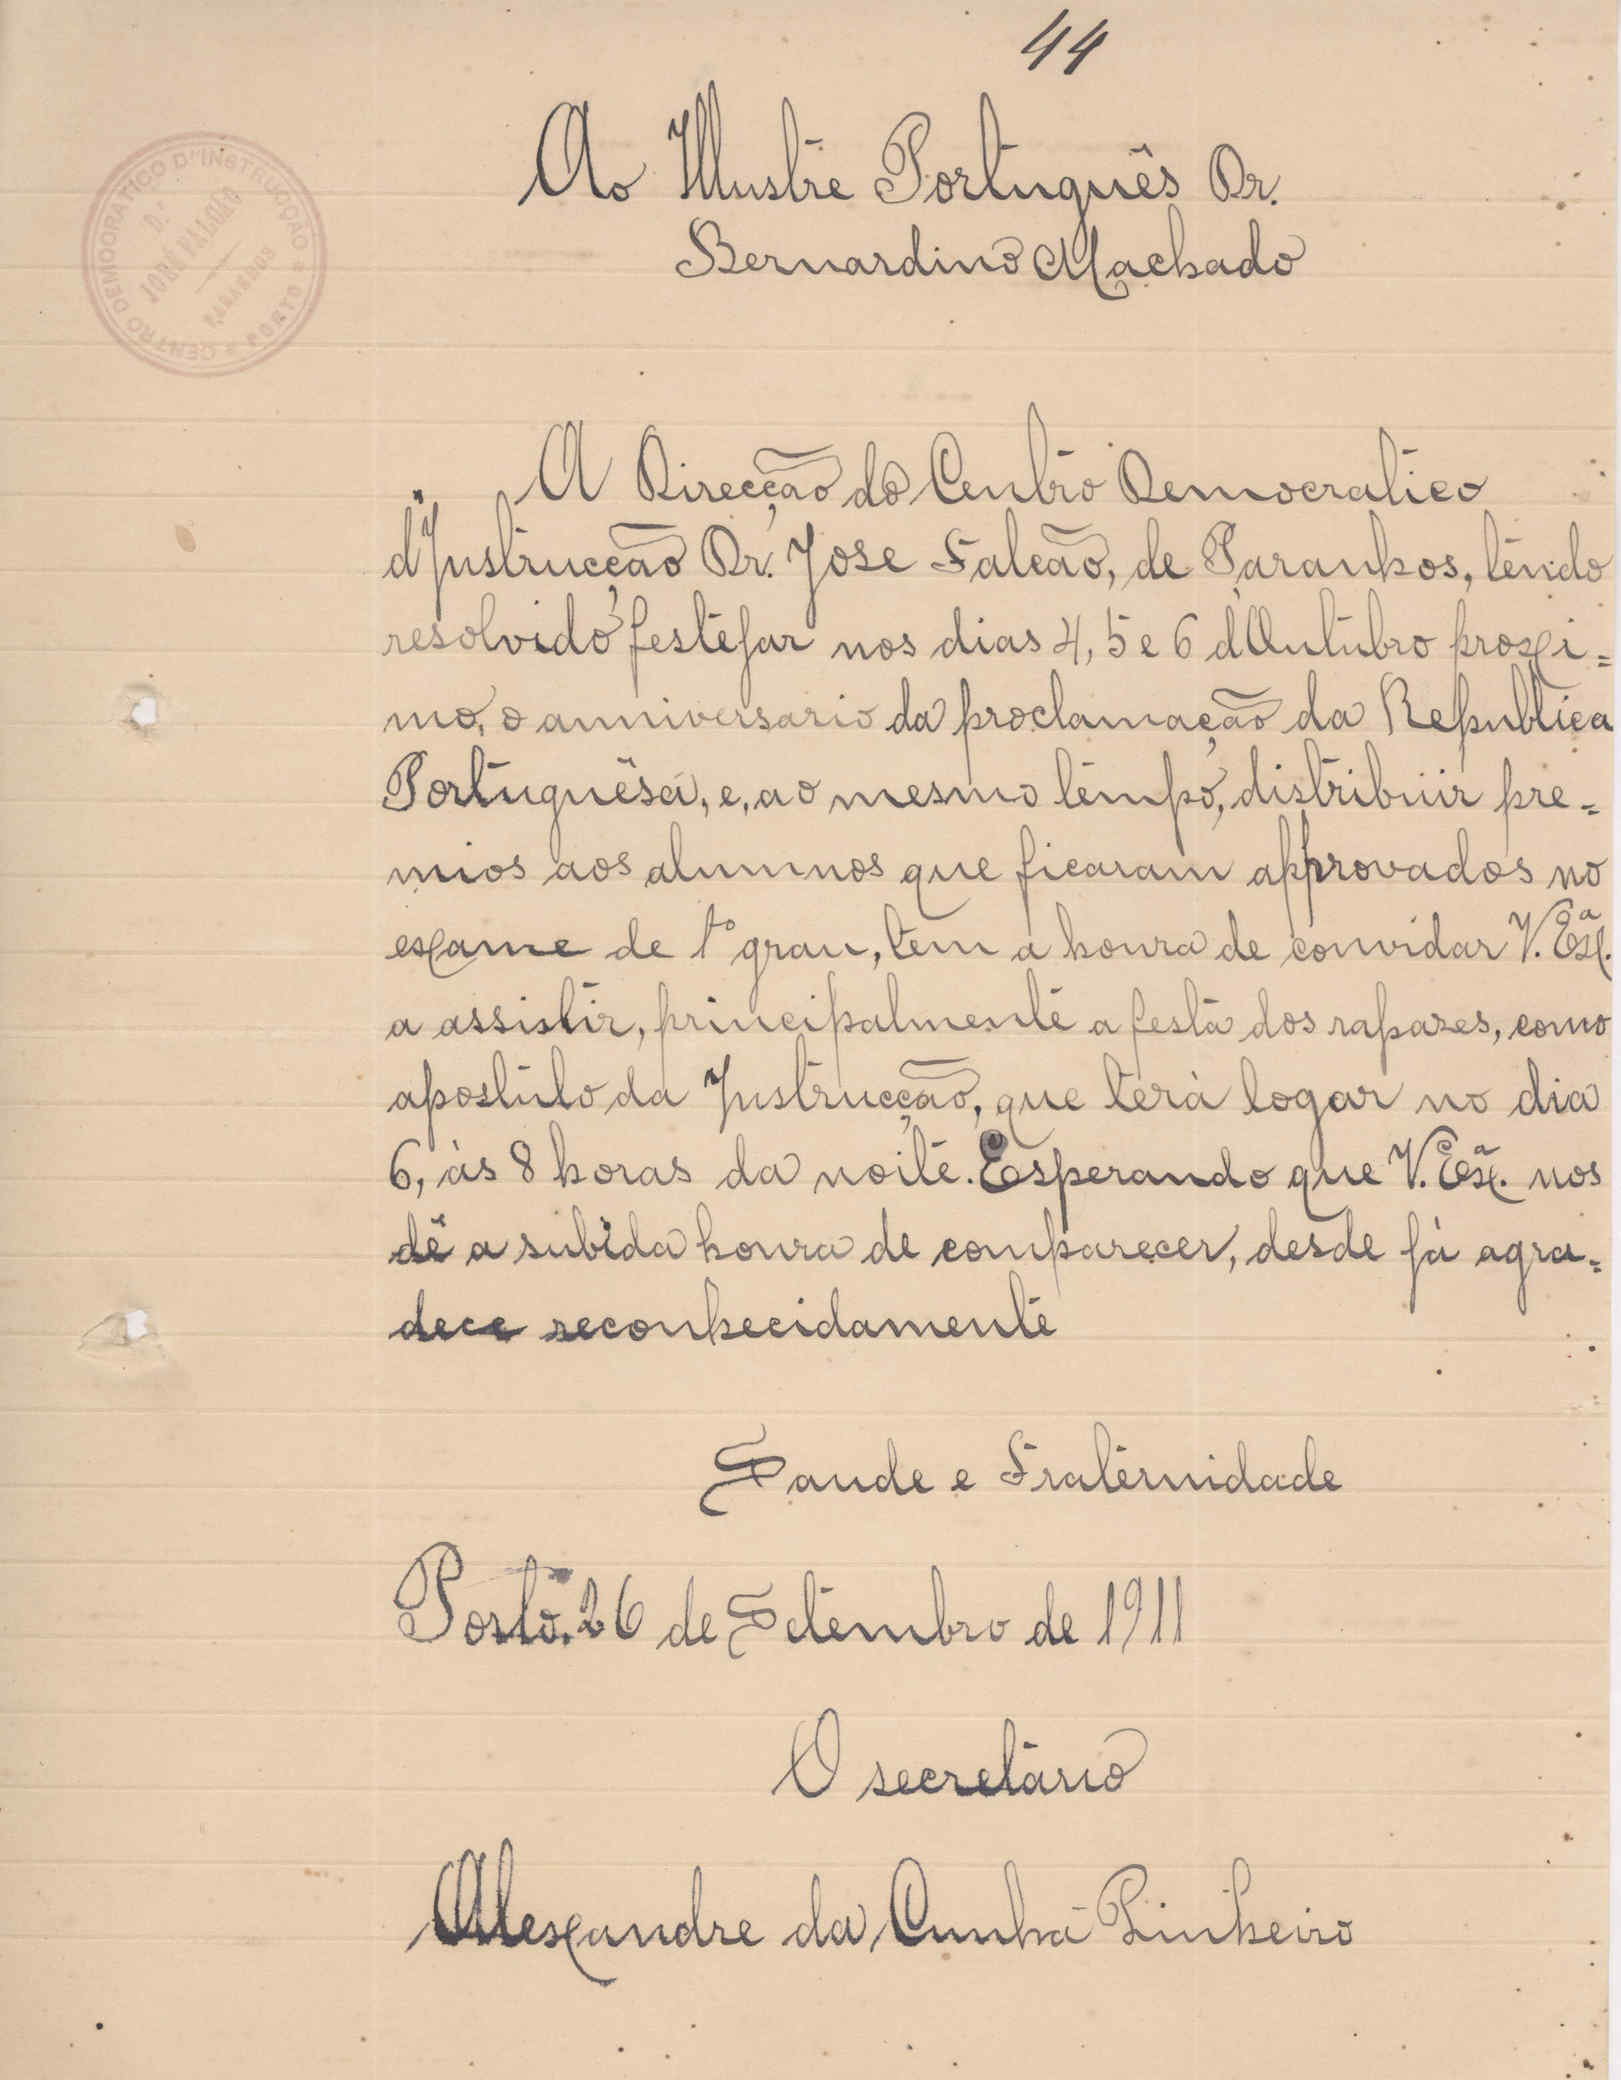 44
CENTRO DEMOCRATICO D'INSTRUCÇÃO
D.r
JOSÉ FALCÃO
PARANHOS
PORTO
Ao Illustre Português Dr.
Bernardino Machado
A Direcção do Centro Democratico
d'Instrucção Dr. Jose Falcão, de Paranhos, tendo
resolvido festejar nos dias 4, 5 e 6 d'Outubro proxi=
mo, o anniversario da proclamação da Republica
Portuguêsa, e, ao mesmo tempo, distribuir pre=
mios aos alumnos que ficaram approvados no
exame de 1º grau, tem a honra de convidar V. Exª.
a assistir, principalmente a festa dos rapazes, como
apostulo da Instrucção, que terá logar no dia
6, ás 8 horas da noite. Esperando que V. Exª. nos
dê a subida honra de comparecer, desde já agra=
dece reconhecidamente
Saude e Fraternidade
Porto, 26 de Setembro de 1911
O secretario
Alexandre da Cunha Pinheiro